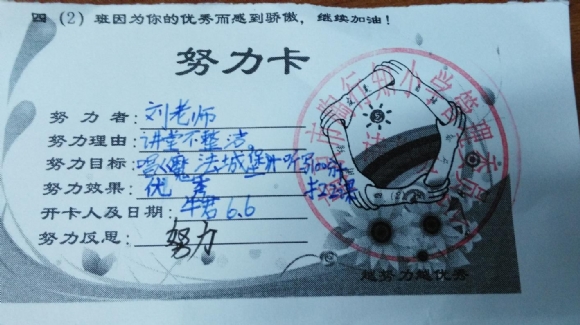 四（2）班因为你的优秀而感到骄傲，继续加油！
努力卡
努力者：刘老师
努力理由：讲堂不整洁。
努力目标：唱《魔法城堡》并听写
努力效果：优秀
开卡人及日期：牛君 6.6
努力反思：努力
越努力越优秀